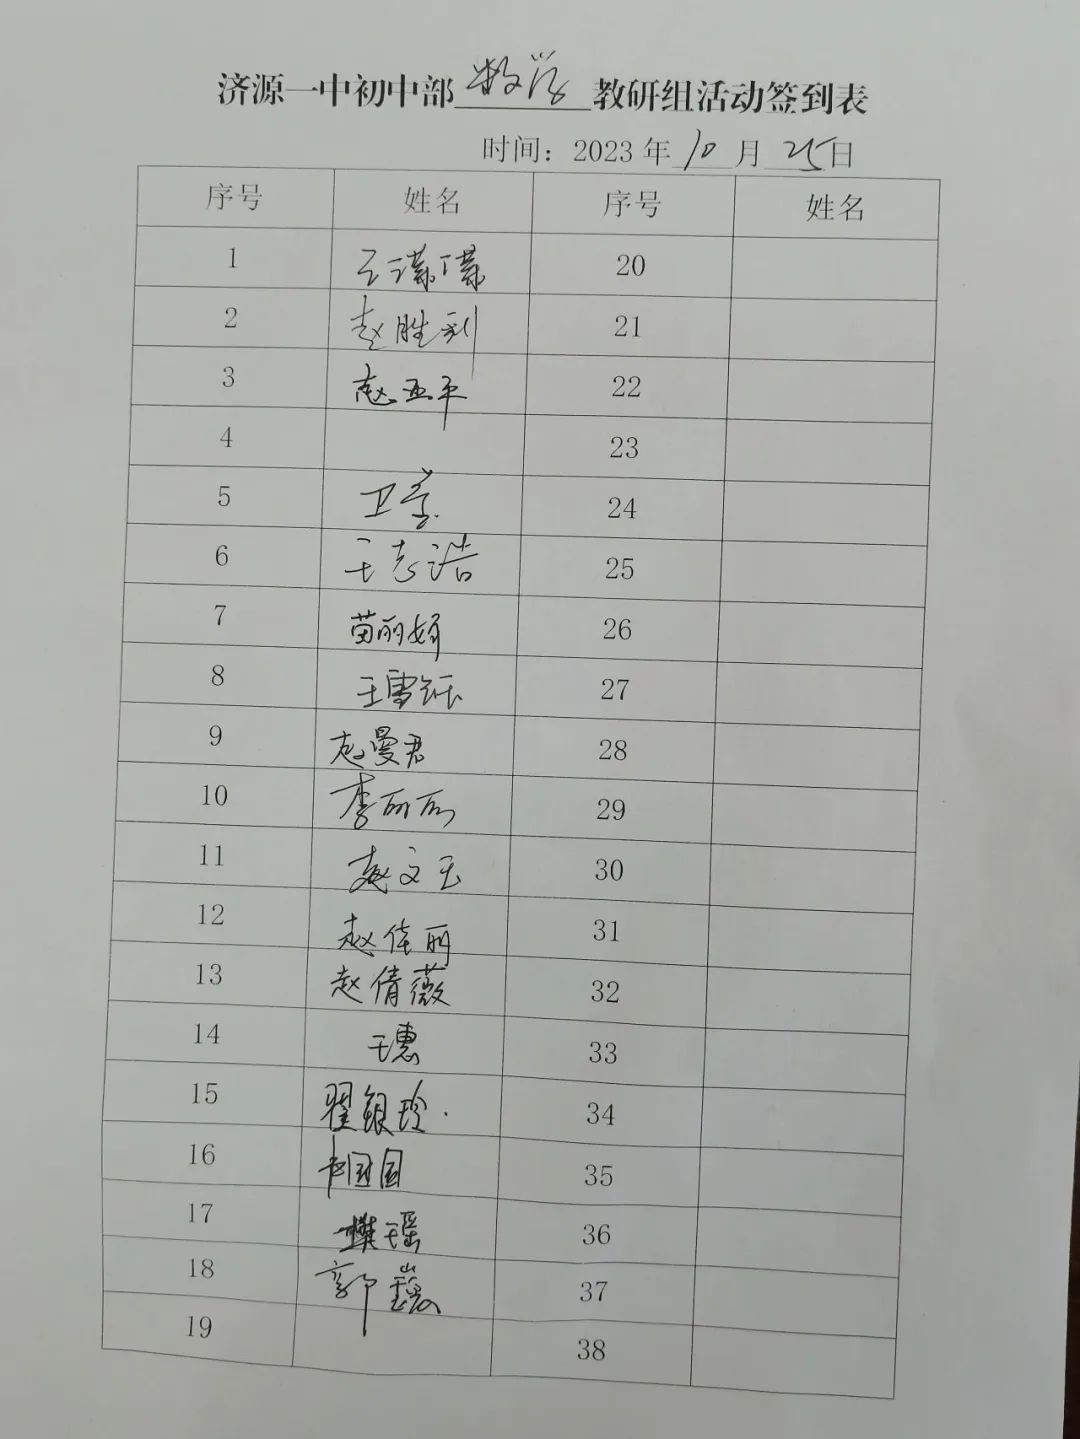 济源一中初中部 数学 教研组活动签到表
时间：2023 年 10 月 25 日
序号 姓名 序号 姓名
1 20
2 赵胜利 21
3 赵亚平 22
4 23
5 24
6 王志浩 25
7 苗丽娟 26
8 王雪钰 27
9 赵曼君 28
10 李丽丽 29
11 赵文玉 30
12 赵佳丽 31
13 赵倩薇 32
14 王惠 33
15 翟银玲 34
16 35
17 樊瑶 36
18 郭 37
19 38